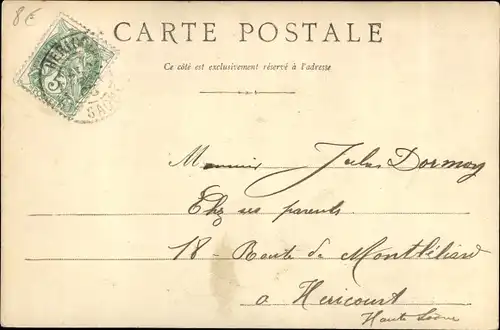 8€
CARTE POSTALE
Ce côté est exclusivement réservé à l'adresse
Monsieur Jules Dormoy
Chez ses parents.
18 - Route de Montbéliard
a Hericourt
Haute Saône